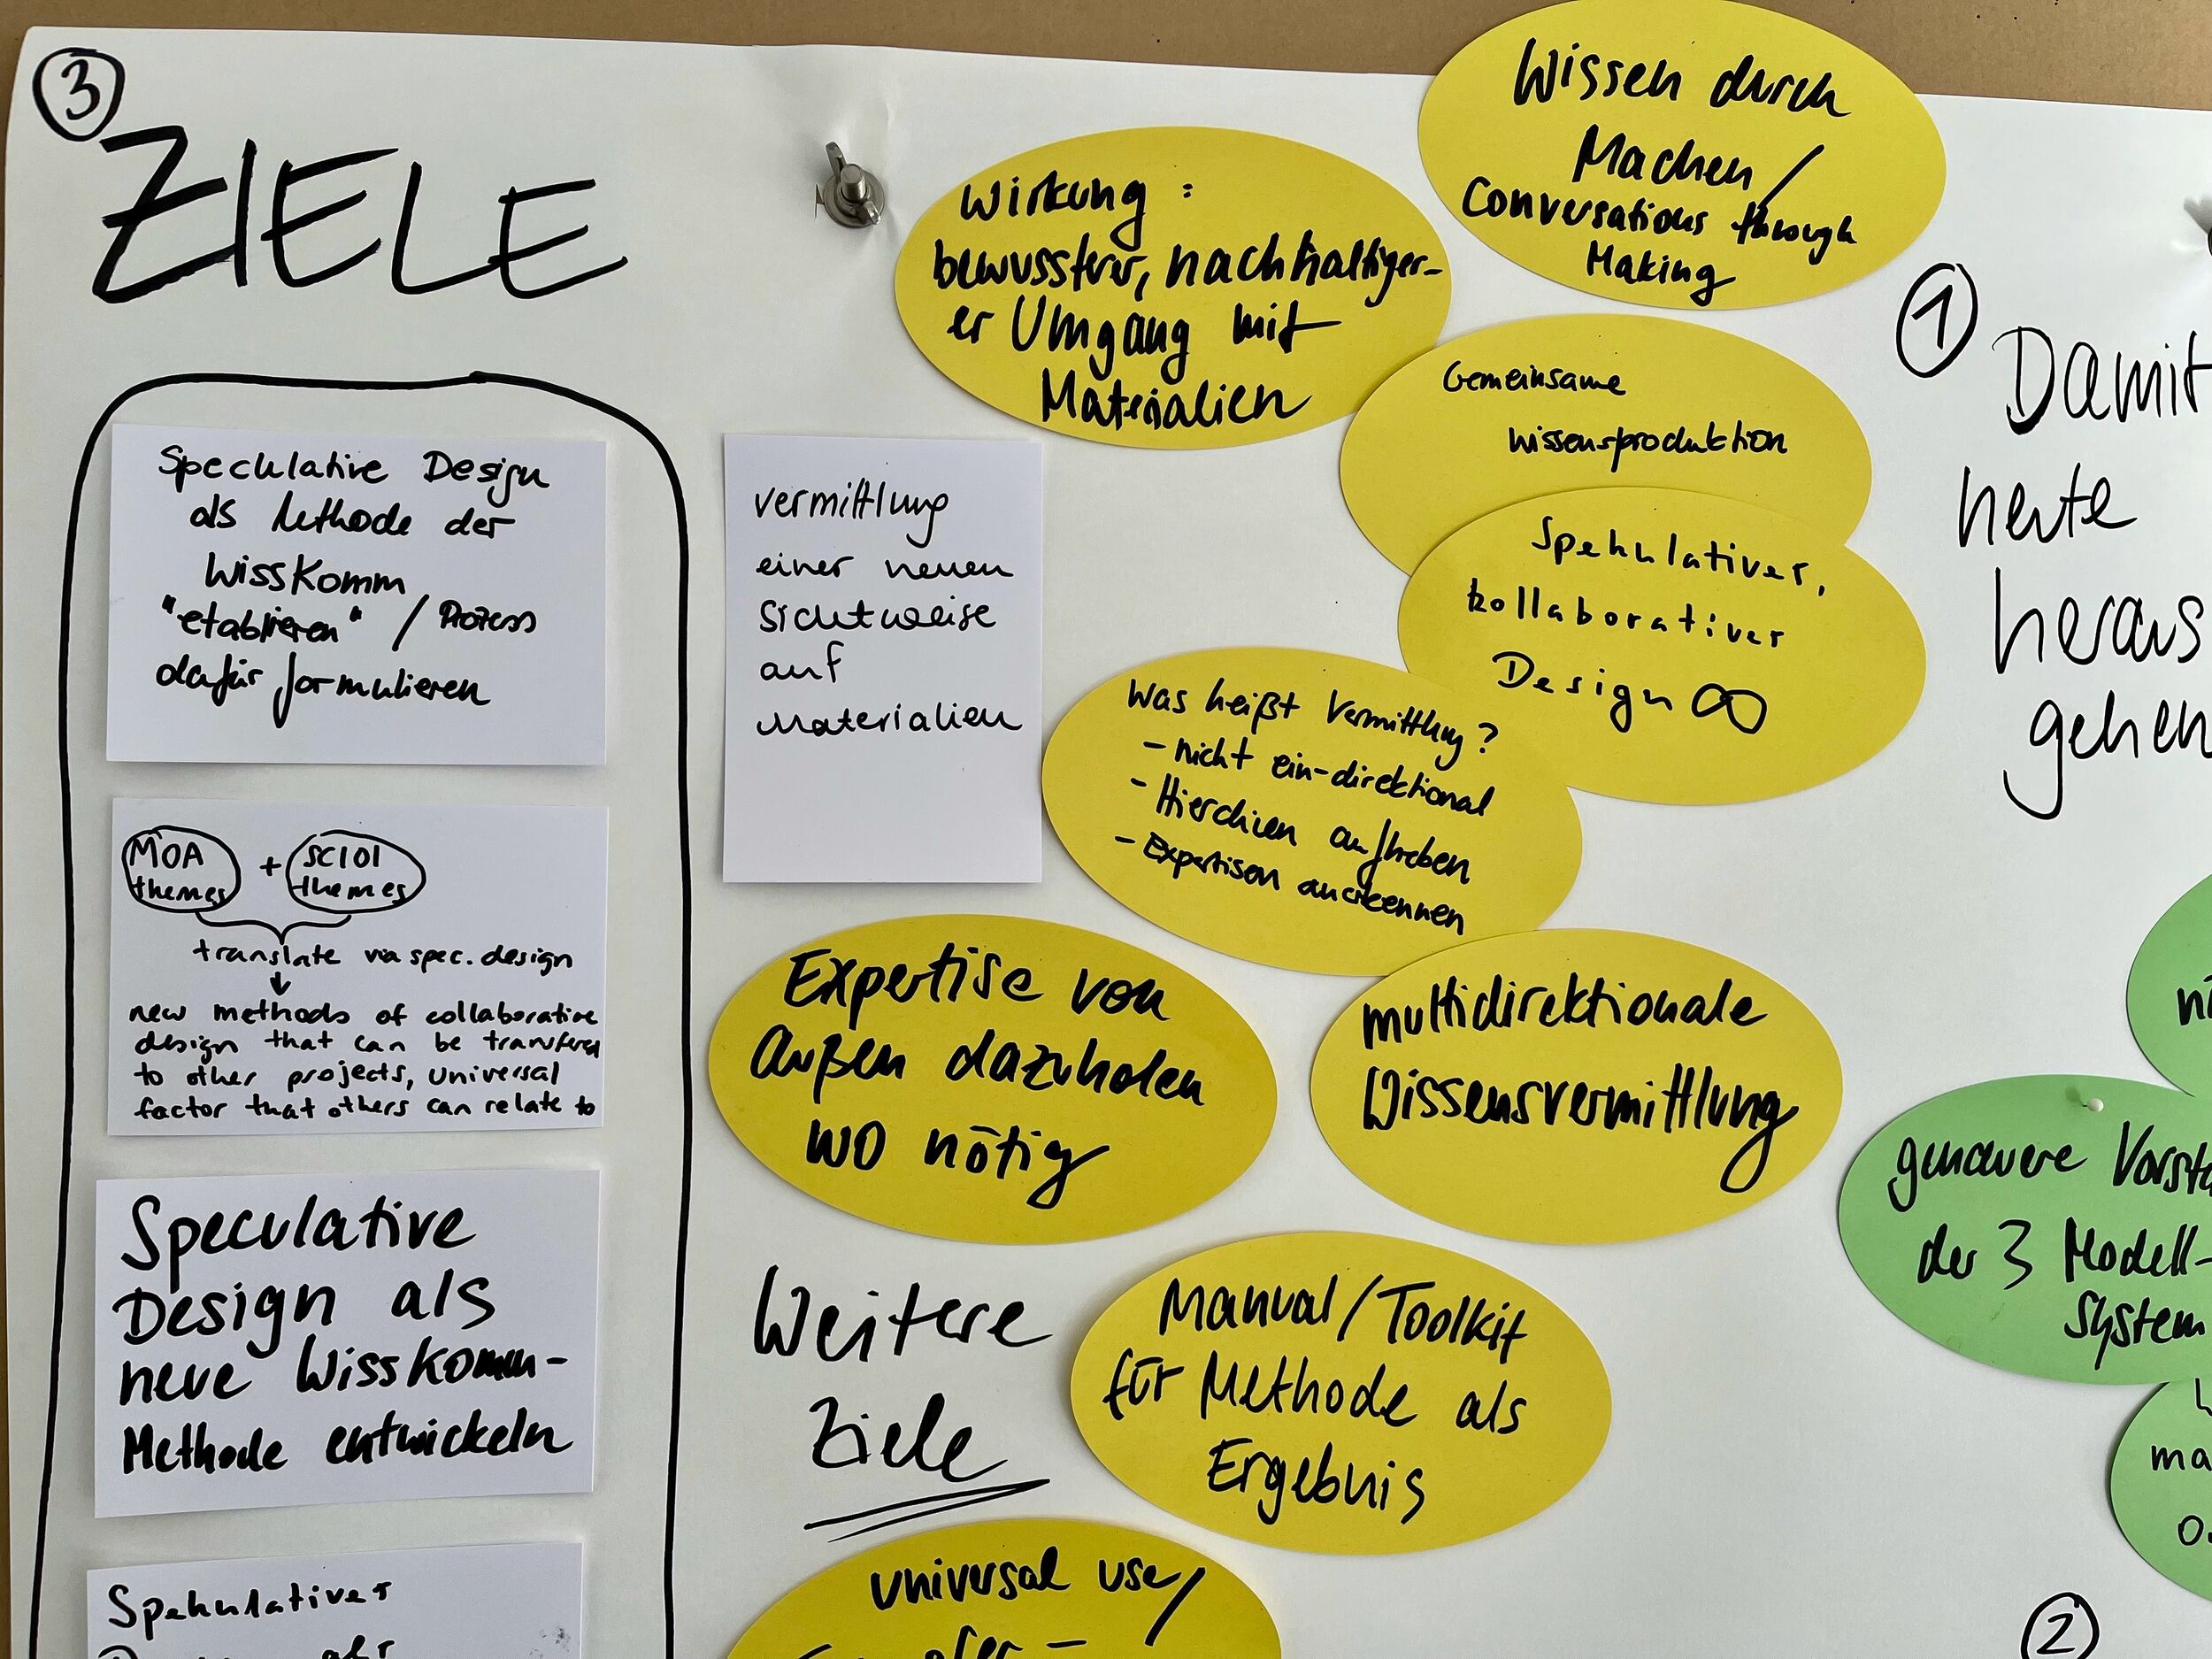 3
ZIELE
Speculative Design
als Methode der
WissKomm
"etablieren" / Prozess
dafür formulieren
MOA + SCIOI
themes themes
translate via spec. design
↓
new methods of collaborative
design that can be transfered
to other projects, universal
factor that others can relate to
Speculative
Design als
neue WissKomm-
Methode entwickeln
Spekulatives
als
vermittlung
einer neuen
Sichtweise
auf
Materialien
Wirkung:
bewussterer, nachhaltiger-
er Umgang mit
Materialien
Wissen durch
Machen /
Conversations through
Making
Gemeinsame
Wissensproduktion
Spekulatives,
kollaboratives
Design ∞
Was heißt Vermittlung?
- nicht ein-direktional
- Hierchien aufheben
- Expertisen anerkennen
Expertise von
Außen dazuholen
wo nötig
multidirektionale
Wissensvermittlung
Weitere
Ziele
Manual/Toolkit
für Methode als
Ergebnis
universal use/
1
Damit
heute
heraus
gehen
genauere
der 3 Modell-
System
2